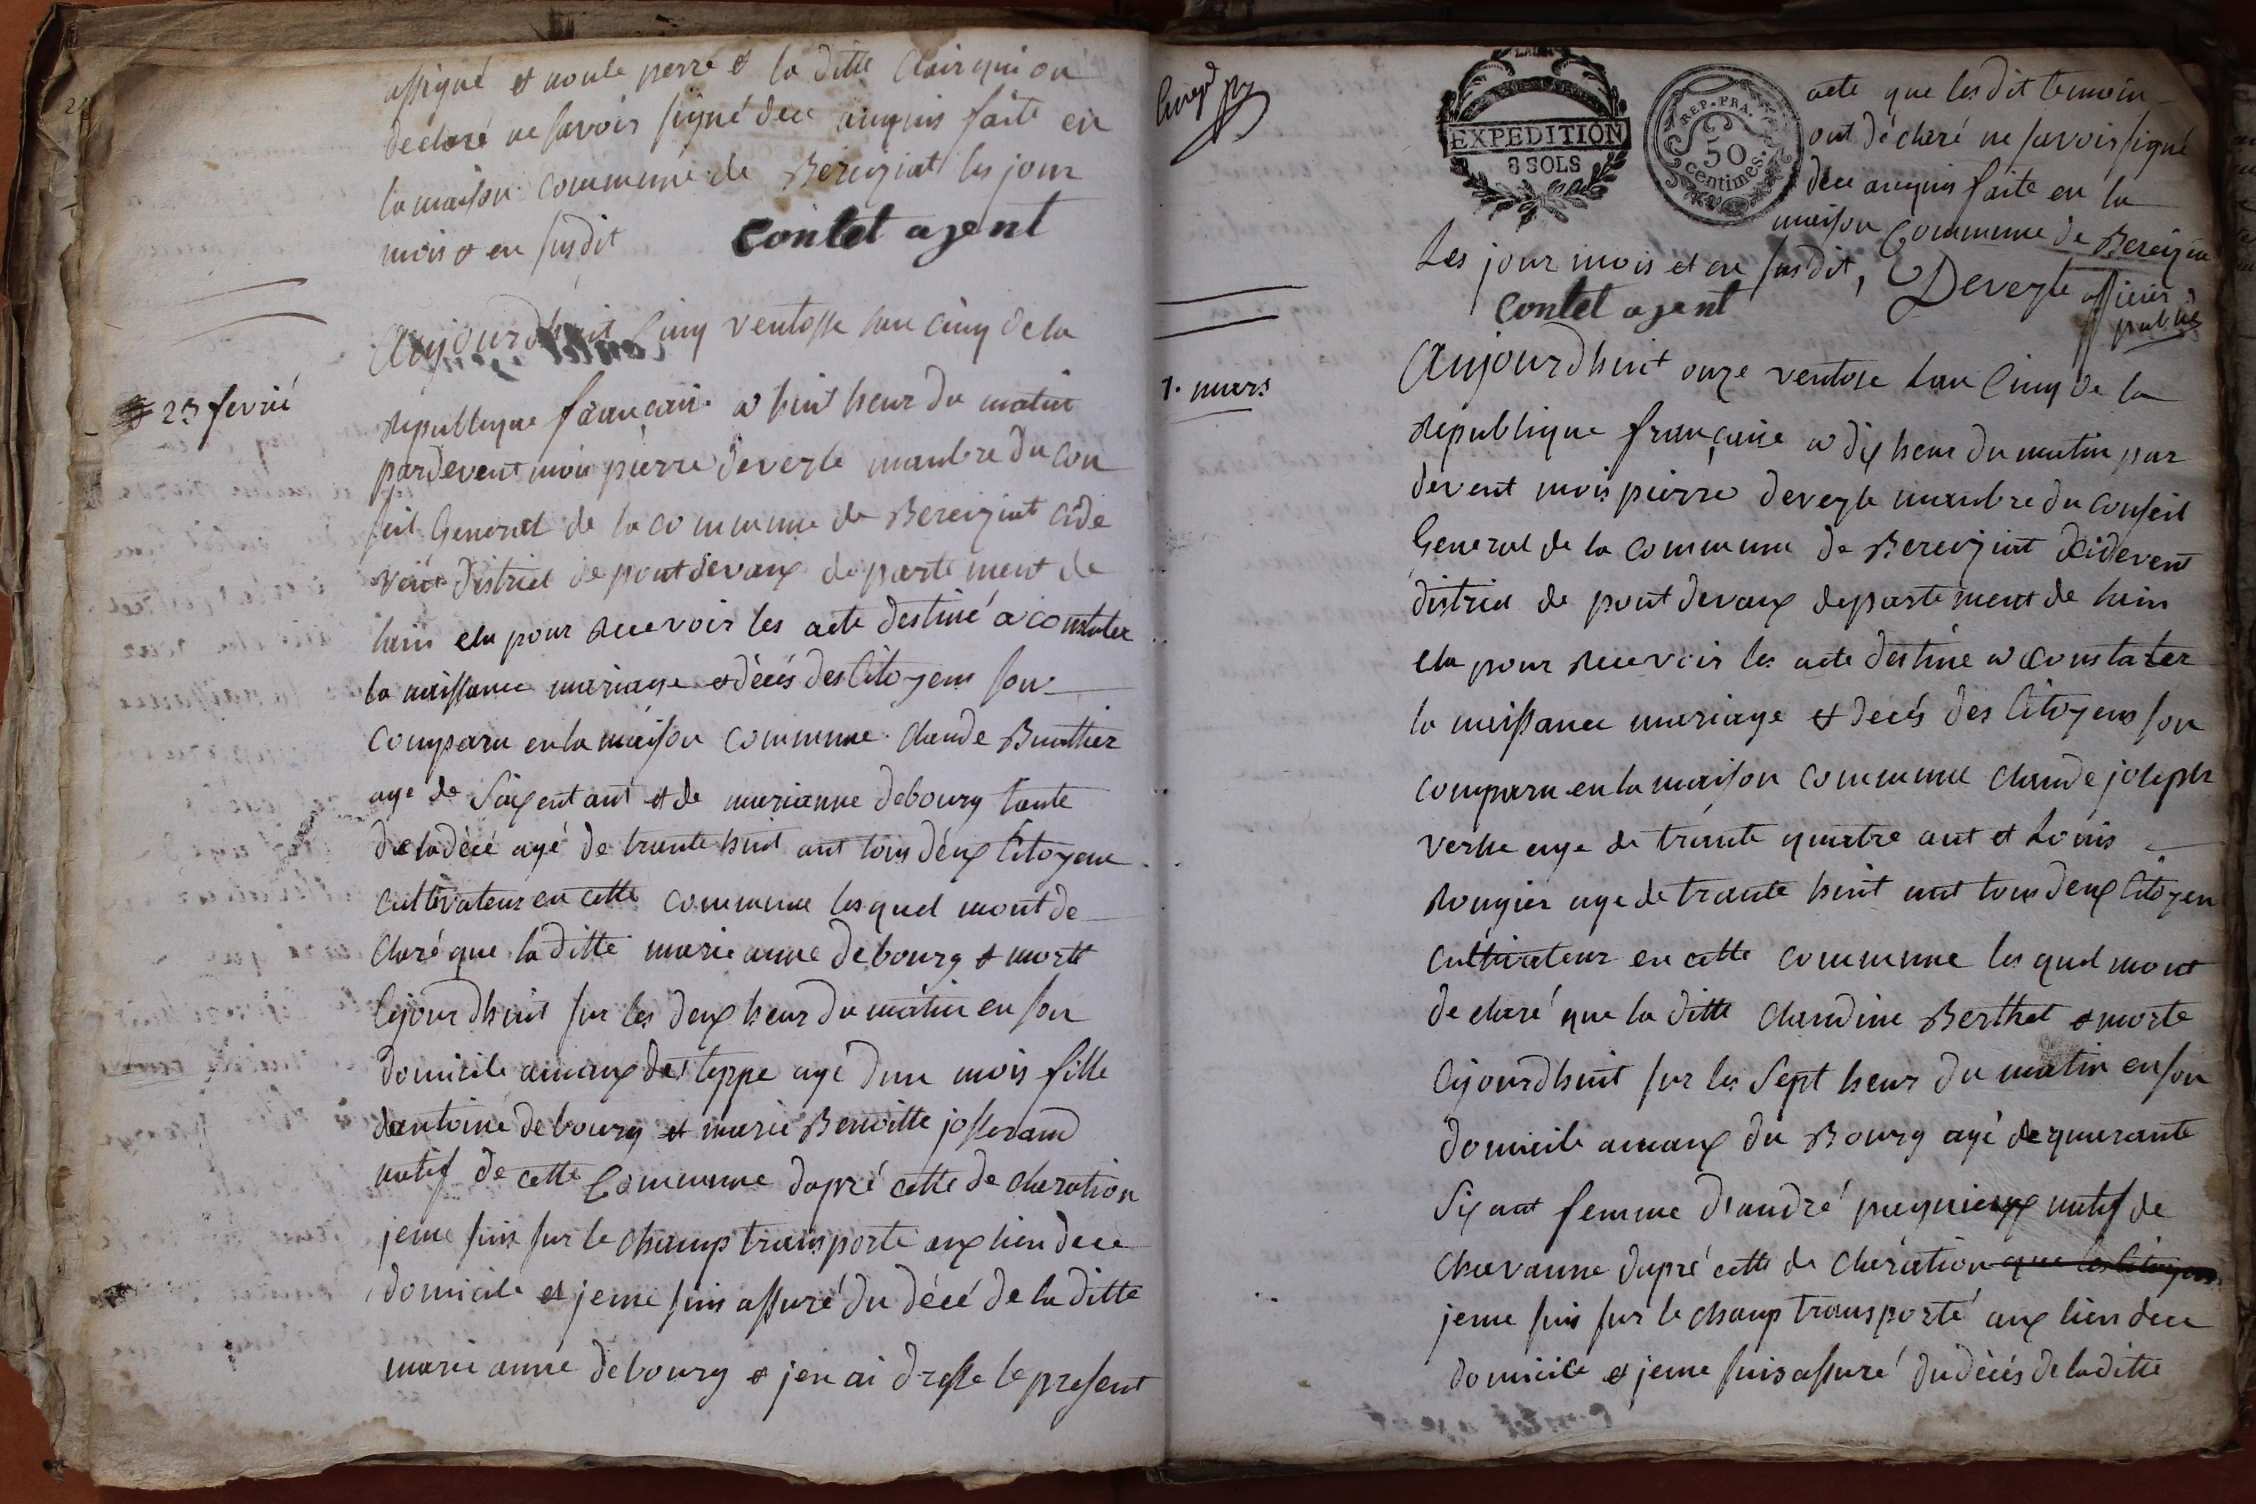 assigné et nonle perre et la ditte Clair qui on
declaré ne savoir signé dece anquis faite en
la maison commune de Bereiziat les jour
mois & en susdit
Contet agent
23 fevrié
Aujourdhuit Cinq ventosse lan cinq de la
Republique francaise a huit heur du matin
pardevent mois pierre deveyle manbre du con
seil General de la commune de Bereiziat cide
vent district de pontdevaux departement de
lain elu pour recevoir les acte destiné a constater
la naissance mariage & décés des Citoyens son
comparu en la maison commune Claude Bunthier
agé de soixent ant et de marianne debourg tante
de la décé agé de trante huit ant tous déux Citoyene
cultivateur en cette commune les quel mont de
claré que la ditte marie anne debourg & morte
Cejourdhuit sur les deux heur du matin en son
domicile amaux des teppe agé dun mois fille
dantoine debourg et marie Benoitte josserand
natif de cette Commune dapré cette de claration
jeme suis sur le champs transporté aux lieu dece
domicile et jeme suis assuré du décé de la ditte
marie anne debourg & jen ai dresse le present
EXPEDITION
8 SOLS
REP. FRA.
50
centimes.
acte que les dit temoin
ont declaré ne savoir signé
dece anquis faite en la
maison Commune de Bereizia
Les jour mois et en susdit, Deveyle officier
public
Contet agent
1. mars
Aujourdhuit onze ventose lan Cinq de la
Republique française a dix heur du matin par
devent mois pierre deveyle manbre du conseil
General de la commune de Bereiziat cidevent
district de pontdevaux departement de lain
elu pour recevoir les acte destiné a constater
la naissance mariage et decés des Citoyens son
comparu en la maison commune claude joseph
verne age de trante quatre ant et Louis
Rougier age de trante huit ant tous deux Citoyen
cultivateur en cette commune les quel mont
declaré que la ditte claudine Berthet & morte
Cejourdhuit sur les sept heur du matin en son
domicile amaux du Bourg agé de quarante
six ant femme d'andré pugnieux natif de
chavanne dapré cette de claration que les Citoyens
jeme suis sur le champ transporté aux lieu dece
domicile et jeme suis assuré du décés de la ditte